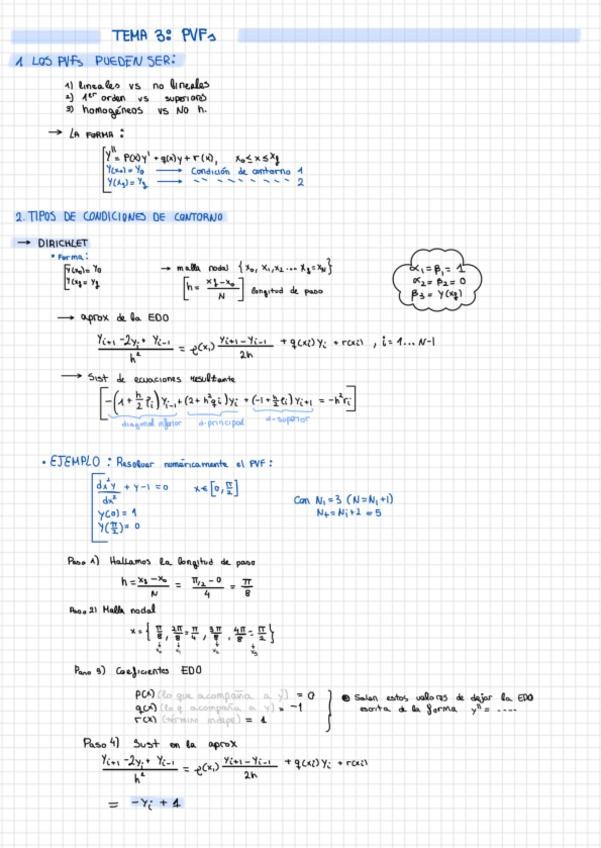 TEMA 3: PVFs
1 LOS PVFs PUEDEN SER:
1) lineales vs no lineales
2) 1er orden vs superiores
3) homogéneos vs NO h.
→ LA FORMA:
y'' = p(x)y' + q(x)y + r(x), x₀ ≤ x ≤ x_f
y(x₀) = y₀ → Condición de contorno 1
y(x_f) = y_f → 2
2. TIPOS DE CONDICIONES DE CONTORNO
→ DIRICHLET
• Forma:
y(x₀) = y₀
y(x_f = y_f
→ malla nodal {x₀, x₁, x₂ ... x_f = x_N}
[h = (x_f - x₀)/N] longitud de paso
α₁ = β₁ = 1
α₂ = β₂ = 0
β₃ = y(x_f)
→ aprox de la EDO
(y_{i+1} - 2y_i + y_{i-1})/h² = p(x_i) (y_{i+1} - y_{i-1})/2h + q(x_i) y_i + r(x_i), i = 1... N-1
→ Sist de ecuaciones resultante
[-(1 + h/2 p_i) y_{i-1} + (2 + h² q_i) y_i + (-1 + h/2 p_i) y_{i+1} = -h² r_i]
diagonal inferior d-principal d-superior
• EJEMPLO: Resolver numéricamente el PVF:
d²y/dx² + y - 1 = 0 x ∈ [0, π/2]
y(0) = 1
y(π/2) = 0
Con N_i = 3 (N = N_i + 1)
N_t = N_i + 2 = 5
Paso 1) Hallamos la longitud de paso
h = (x_f - x₀)/N = (π/2 - 0)/4 = π/8
Paso 2) Malla nodal
x = {π/8, 2π/8 = π/4, 3π/8, 4π/8 = π/2}
Paso 3) Coeficientes EDO
p(x) (lo que acompaña a y') = 0
q(x) (lo q acompaña a y) = -1
r(x) (término indep) = 1
Salen estos valores de dejar la EDO
escrita de la forma y'' = ....
Paso 4) Sust en la aprox
(y_{i+1} - 2y_i + y_{i-1})/h² = p(x_i) (y_{i+1} - y_{i-1})/2h + q(x_i) y_i + r(x_i)
= -y_i + 1